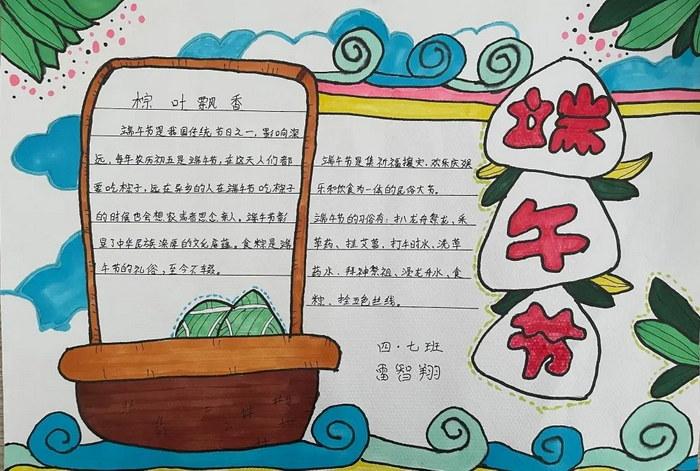 粽叶飘香
端午节是我国传统节日之一,影响深
远,每年农历初五是端午节,在这天人们都
要吃粽子,远在异乡的人在端午节吃粽子
的时候也会想家或者思念亲人。端午节彰
显了中华民族深厚的文化底蕴。食粽是端
午节的礼俗,至今不辍。
端午节是集祈福攘灾、欢乐庆祝
乐和饮食为一体的民俗大节。
端午节的习俗有:扒龙舟祭龙,采
草药、挂艾蒿、打午时水、洗草
药水、拜神祭祖、浸龙舟水、食
粽、拴五色丝线。
四·七班
雷智翔
端午节